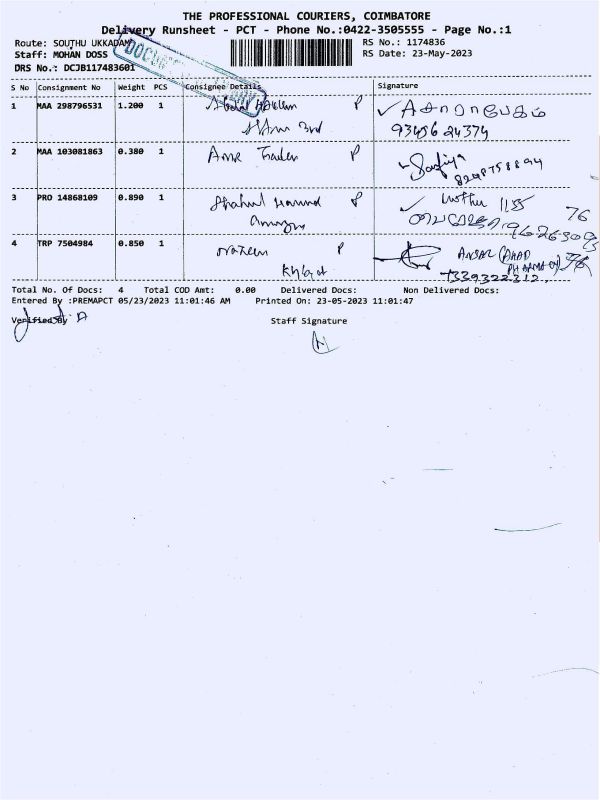 THE PROFESSIONAL COURIERS, COIMBATORE
Delivery Runsheet - PCT - Phone No.:0422-3505555 - Page No.:1
Route: SOUTHU UKKADAM
RS No.: 1174836
Staff: MOHAN DOSS
RS Date: 23-May-2023
DRS No.: DCJB117483601
S No Consignment No Weight PCS Consignee Details Signature
1 MAA 298796531 1.200 1 Abdul Hakkem P
93456 24374
2 MAA 103081863 0.380 1 P
Safiya
3 PRO 14868109 0.890 1 Shahul P
Mother 1155
76
4 TRP 7504984 0.850 1 P
ANSAR
7339322312
Total No. Of Docs: 4 Total COD Amt: 0.00 Delivered Docs: Non Delivered Docs:
Entered By :PREMAPCT 05/23/2023 11:01:46 AM Printed On: 23-05-2023 11:01:47
Verified By
Staff Signature